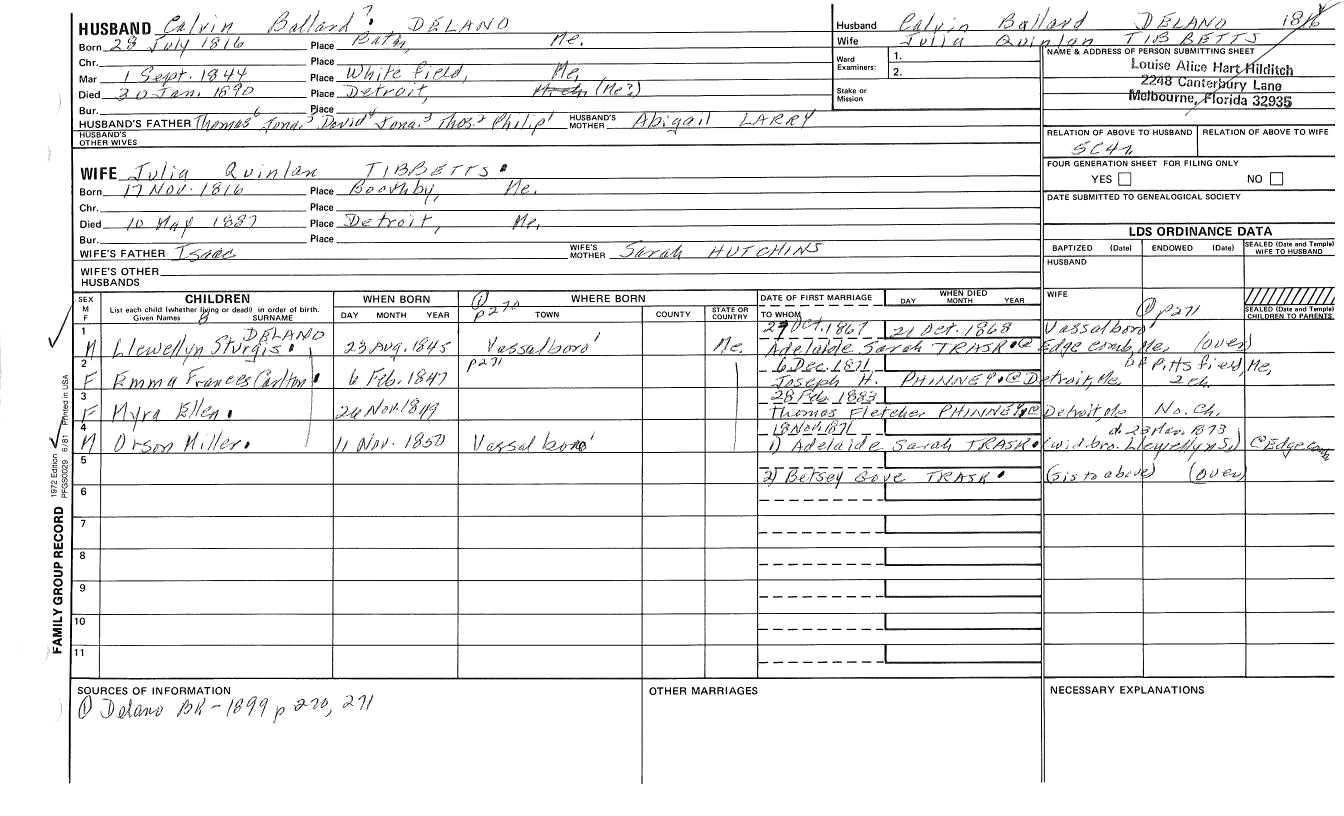 HUSBAND Calvin Ballard 7 DELANO
Born 28 July 1816 Place Bath, Me.
Chr. Place
Mar 1 Sept. 1844 Place Whitefield, Me,
Died 30 Jan. 1890 Place Detroit, Mich (Me?)
Bur. Place
HUSBAND'S FATHER Thomas 6 Jona. 5 David 4 Jona. 3 Thos. 2 Philip 1 HUSBAND'S MOTHER Abigail LARRY
HUSBAND'S OTHER WIVES
WIFE Julia Quinlan TIBBETTS
Born 17 Nov. 1816 Place Boothby, Me.
Chr. Place
Died 10 May 1887 Place Detroit, Me,
Bur. Place
WIFE'S FATHER Isaac WIFE'S MOTHER Sarah HUTCHINS
WIFE'S OTHER HUSBANDS
Husband Calvin Ballard DELANO 1816
Wife Julia Quinlan TIBBETTS
Ward Examiners: 1.
2.
Stake or Mission
NAME & ADDRESS OF PERSON SUBMITTING SHEET
Louise Alice Hart Hilditch
2248 Canterbury Lane
Melbourne, Florida 32935
RELATION OF ABOVE TO HUSBAND RELATION OF ABOVE TO WIFE
5C4R
FOUR GENERATION SHEET FOR FILING ONLY
YES NO
DATE SUBMITTED TO GENEALOGICAL SOCIETY
LDS ORDINANCE DATA
BAPTIZED (Date) ENDOWED (Date) SEALED (Date and Temple) WIFE TO HUSBAND
HUSBAND
WIFE
① p271 SEALED (Date and Temple) CHILDREN TO PARENTS
SEX M F CHILDREN WHEN BORN ① p270 WHERE BORN DATE OF FIRST MARRIAGE WHEN DIED
List each child (whether living or dead) in order of birth. DAY MONTH YEAR TOWN COUNTY STATE OR COUNTRY TO WHOM DAY MONTH YEAR
Given Names 8 SURNAME
1 DELANO 27 Oct. 1867 21 Oct. 1868 Vassalboro'
M Llewellyn Sturgis 23 Aug. 1845 Vassalboro' Me. Adelaide Sarah TRASK @ Edgecomb, Me, (over)
2 p271 6 Dec. 1871 of Pittsfield, Me,
F Emma Frances Carlton 6 Feb. 1847 Joseph H. PHINNEY @ Detroit, Me. 2 ch.
3 28 Feb. 1883
F Myra Ellen 24 Nov. 1849 Thomas Fletcher PHINNEY @ Detroit, Me No. Ch.
4 18 Nov 1871 d. 23 Mar. 1873
M Orson Miller 11 Nov. 1850 Vassalboro' 1) Adelaide Sarah TRASK (wid. bro. Llewellyn S.) @ Edgecomb
5 2) Betsey Gove TRASK (sis to above) (over)
6
7
8
9
10
11
FAMILY GROUP RECORD 1972 Edition PFGS0029 6/81 Printed in USA
SOURCES OF INFORMATION
① Delano BK - 1899 p 270, 271
OTHER MARRIAGES
NECESSARY EXPLANATIONS